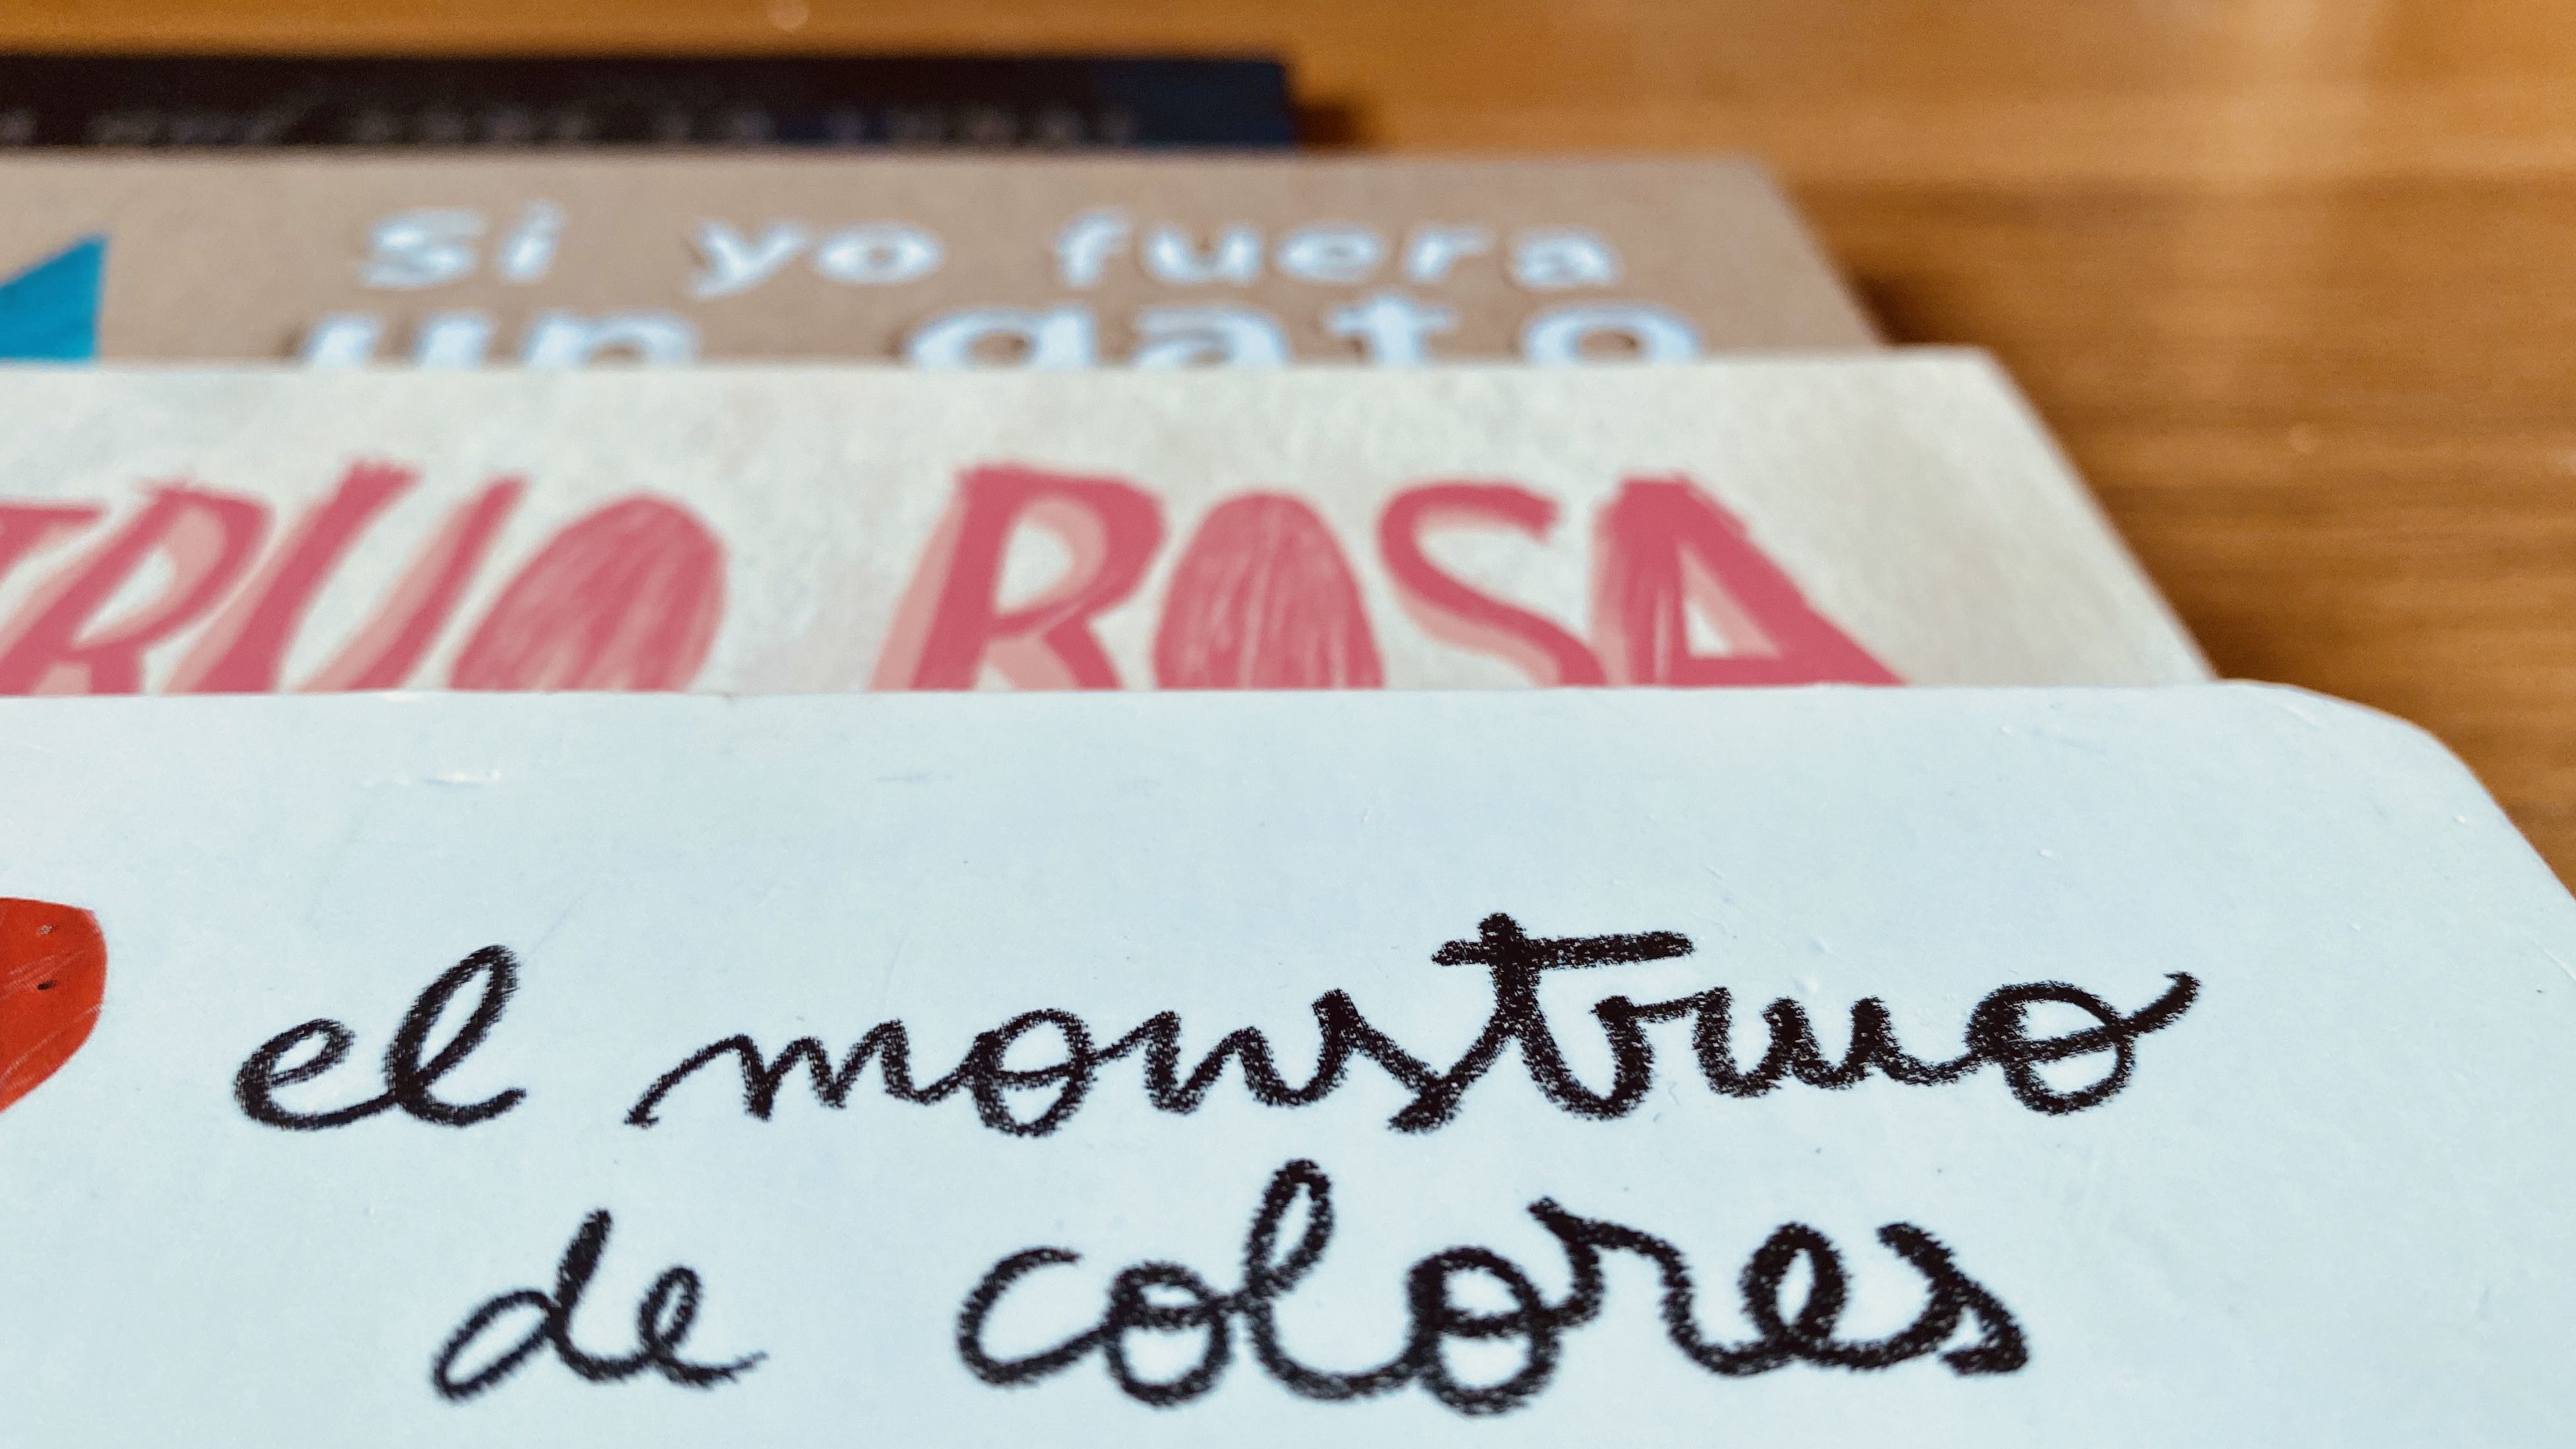 si yo fuera
un gato
TRUO ROSA
el monstruo
de colores